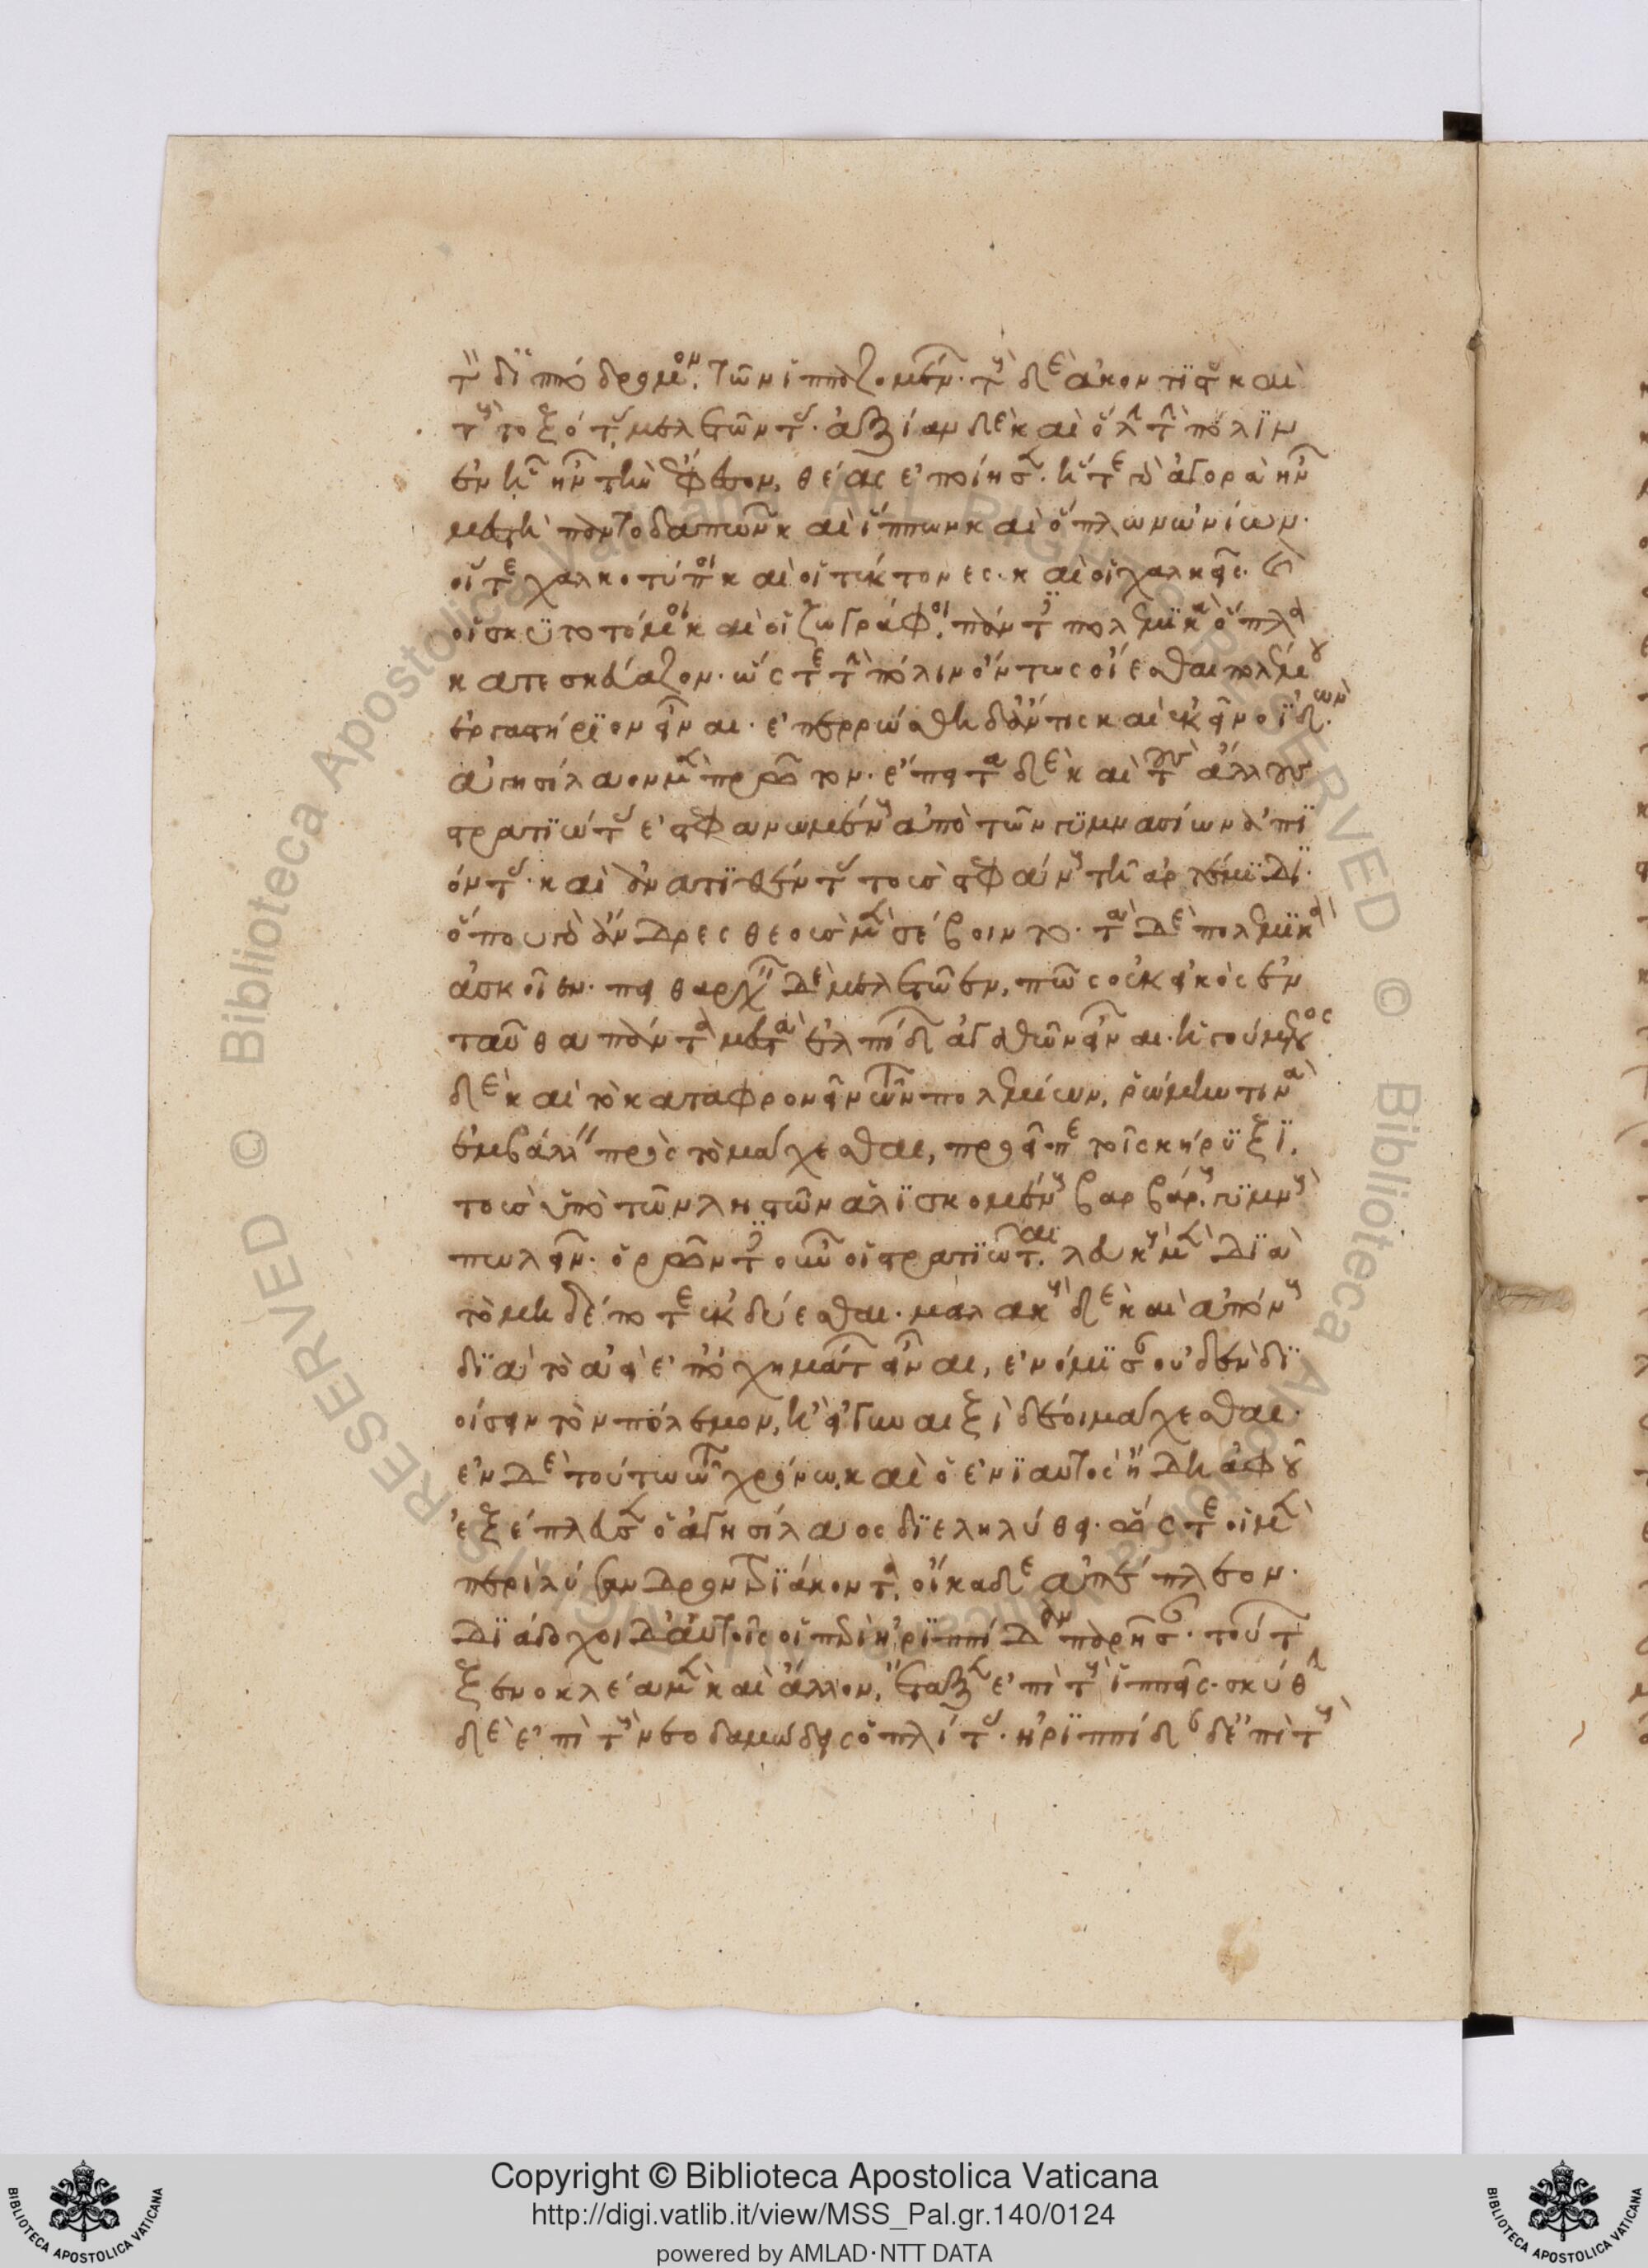 τὸν δ' ἱππόδρομον, τῶν ἱππαζομένων· τοὺς δὲ ἀκοντιστὰς καὶ
τοὺς τοξότας, μελετῶντας· ἀξίαν δὲ καὶ ὅλην τὴν πόλιν
ἐν ᾗ ἦν τὴν ἔφεσον, θέας ἐποίησεν· ἥ τε γὰρ ἀγορὰ ἦν
μεστὴ παντοδαπῶν καὶ ἵππων καὶ ὅπλων ὠνίων·
οἵ τε χαλκοτύποι καὶ οἱ τέκτονες· καὶ οἱ χαλκεῖς· καὶ
οἱ σκυτοτόμοι καὶ οἱ ζωγράφοι, πάντες πολεμικὰ ὅπλα
κατεσκεύαζον· ὥς τε τὴν πόλιν ὄντως οἴεσθαι πολέμου
ἐργαστήριον εἶναι· ἐπερρώσθη δ' ἄν τις καὶ ἐκεῖνο ἰδών·
ἀγησίλαον μὲν πρῶτον· ἔπειτα δὲ καὶ τοὺς ἄλλους
στρατιώτας ἐστεφανωμένους ἀπὸ τῶν γυμνασίων ἀπι
όντας· καὶ ἀνατιθέντας τοὺς στεφάνους τῇ ἀρτέμιδι·
ὅπου γὰρ ἄνδρες θεοὺς μὲν σέβοιντο· τὰ δὲ πολεμικὰ
ἀσκοῖεν· πειθαρχεῖν δὲ μελετῶεν, πῶς οὐκ εἰκὸς ἐν
ταῦθα πάντα μεστὰ ἐλπίδων ἀγαθῶν εἶναι· ἡγούμενος
δὲ καὶ τὸ καταφρονεῖν τῶν πολεμίων, ῥώμην τινὰ
ἐμβάλλειν πρὸς τὸ μάχεσθαι, προεῖπε τοῖς κήρυξι,
τοὺς ὑπὸ τῶν ληστῶν ἁλισκομένους βαρβάρους, γυμνοὺς
πωλεῖν· ὁρῶντες οὖν οἱ στρατιῶται, λευκοὺς μὲν διὰ
τὸ μηδέποτε ἐκδύεσθαι· μαλακοὺς δὲ καὶ ἀπόνους
διὰ τὸ ἀεὶ ἐπ' ὀχημάτων εἶναι, ἐνόμισαν οὐδὲν δι
οίσειν τὸν πόλεμον, ἢ εἰ γυναιξὶ δέοι μάχεσθαι·
ἐν δὲ τούτω τῶ χρόνω, καὶ ὁ ἐνιαυτὸς ἤδη ἀφ' οὗ
ἐξέπλευσεν ὁ ἀγησίλαος διεληλύθει· ὥς τε οἱ μὲν
περὶ λύσανδρον τριάκοντα, οἴκαδε ἀπέπλεον·
διάδοχοι δ' αὐτοῖς οἱ περὶ ἡριππίδαν παρῆσαν· τούτων
ξενοκλέα μὲν καὶ ἄλλον, ἔταξεν ἐπὶ τοὺς ἱππεῖς· σκύθην
δὲ ἐπὶ τοὺς νεοδαμώδεις ὁπλίτας· ἡριππίδαν δ' ἐπὶ τοὺς
Copyright © Biblioteca Apostolica Vaticana
http://digi.vatlib.it/view/MSS_Pal.gr.140/0124
powered by AMLAD·NTT DATA